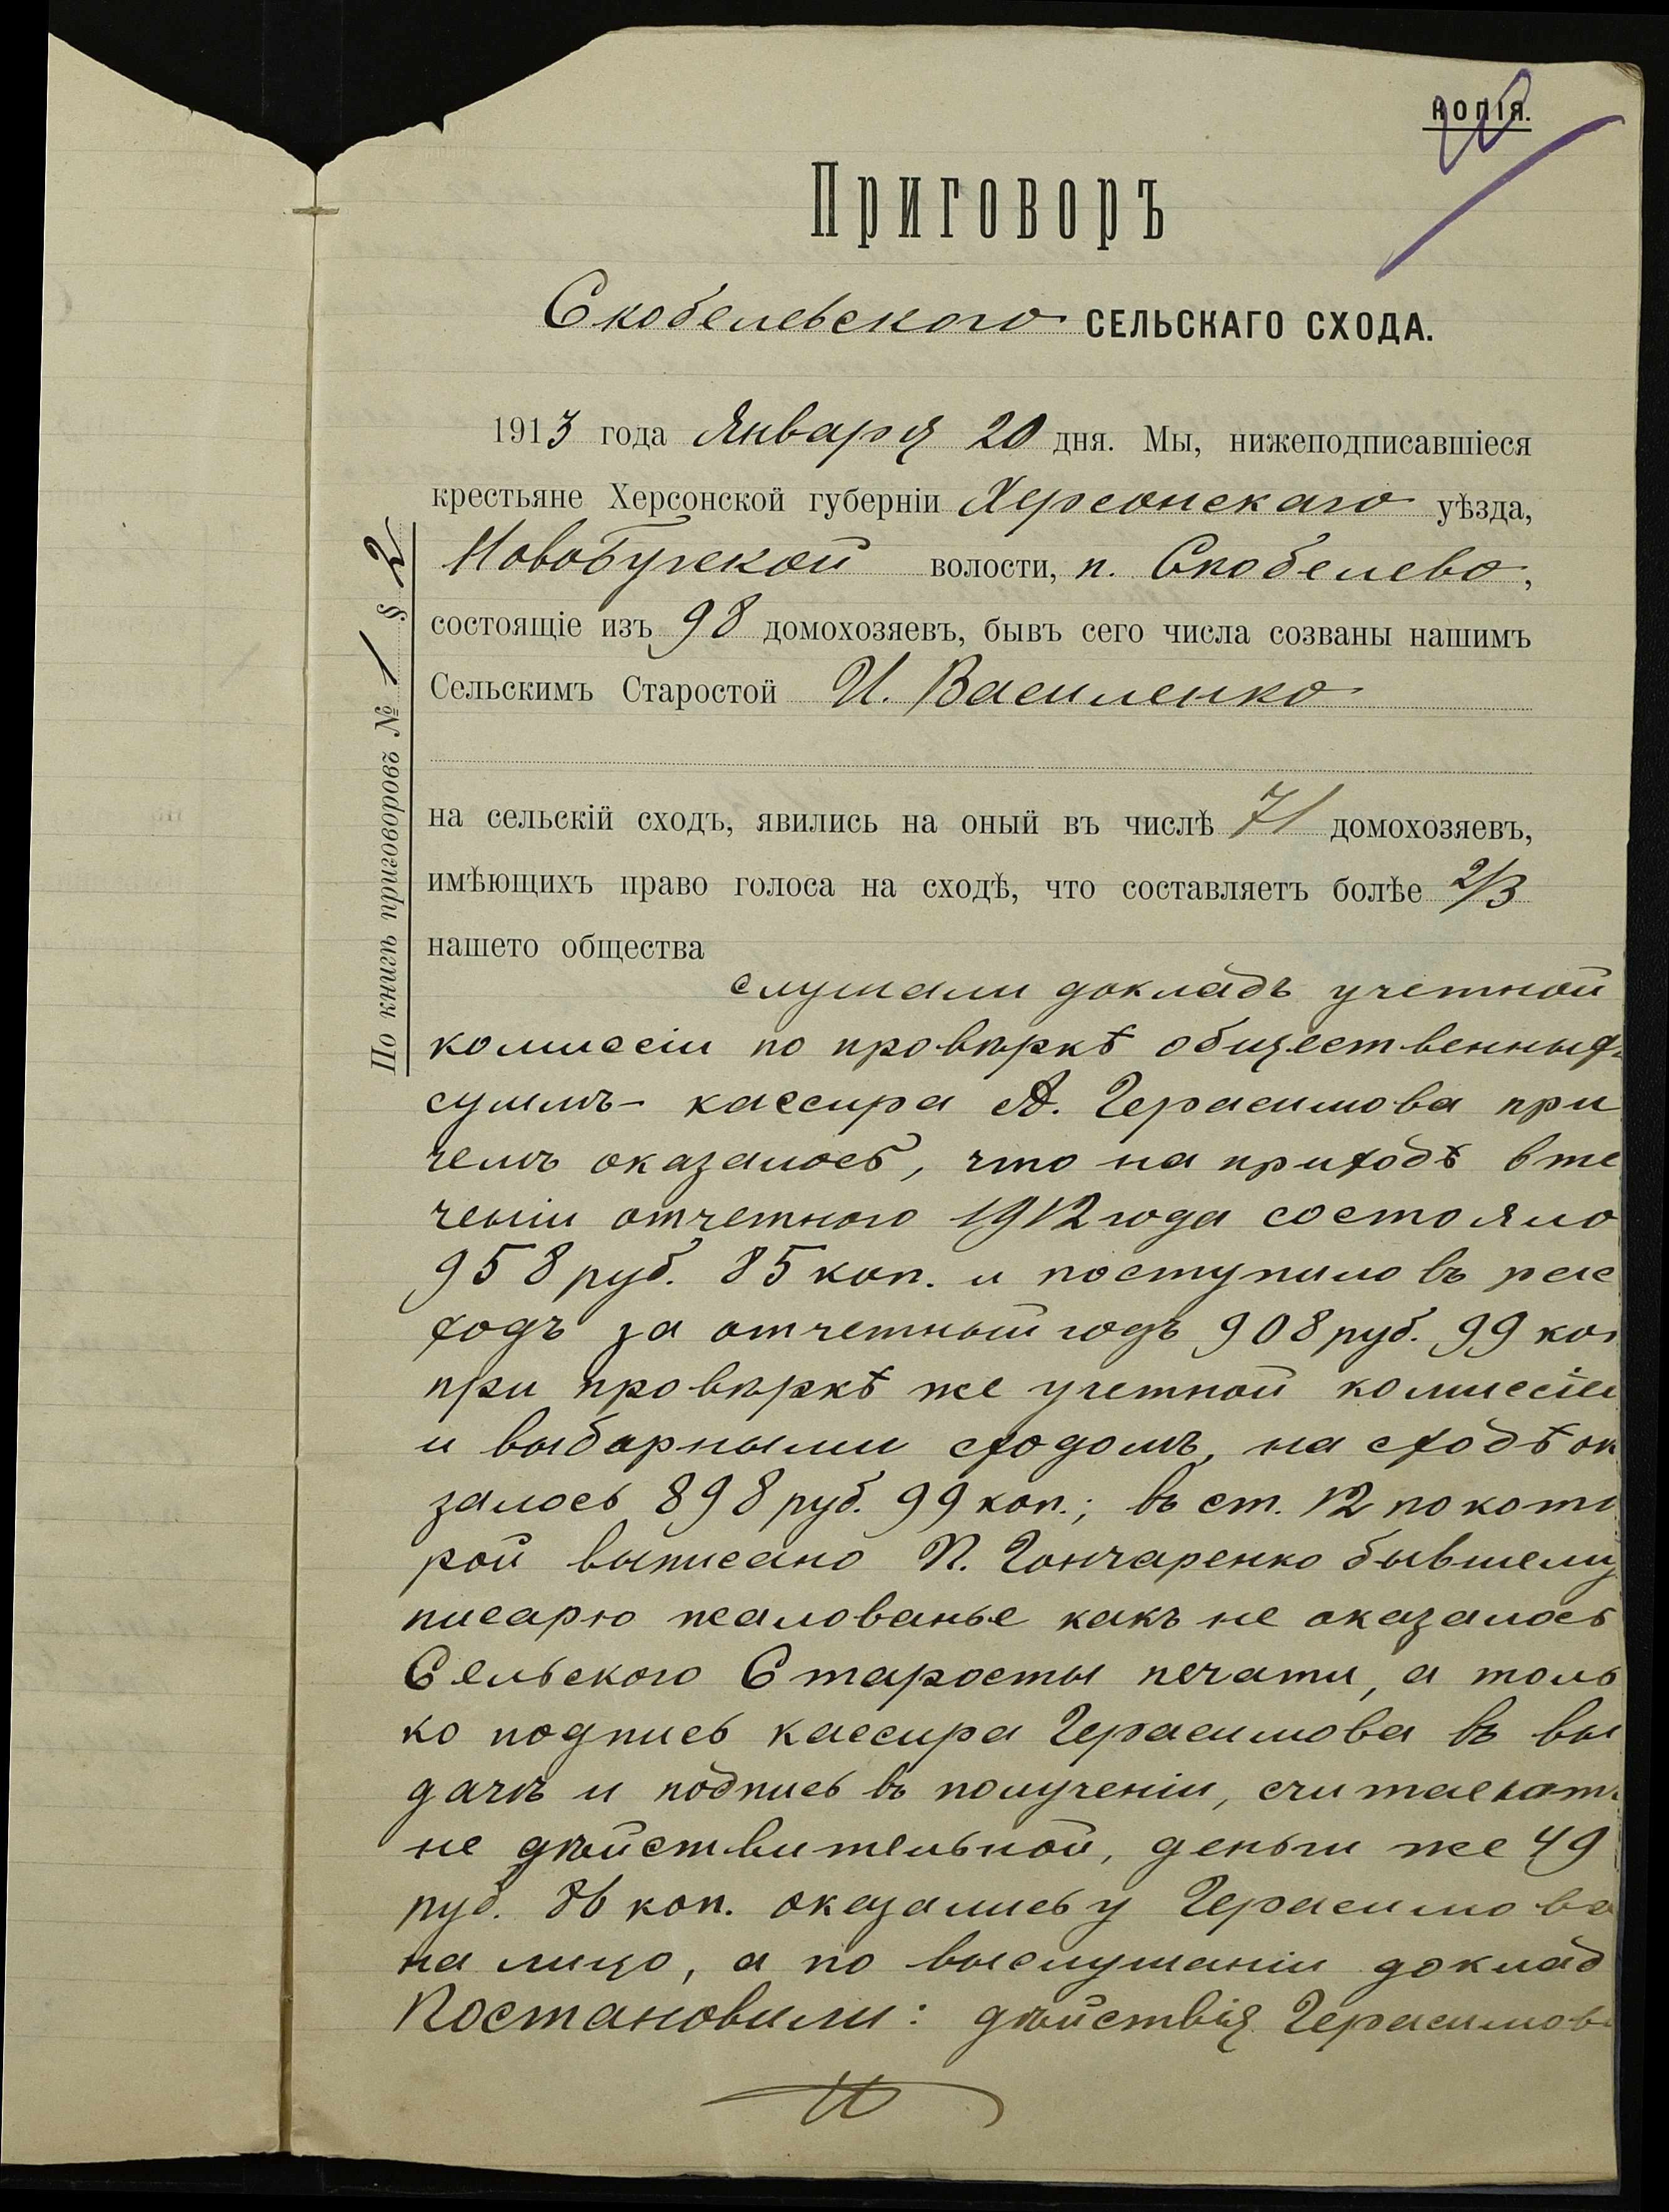 КОПІЯ.
Приговоръ
Скобелевского СЕЛЬСКАГО СХОДА.
1913 года Января 20 дня. Мы, нижеподписавшіеся
крестьяне Херсонской губерніи Херсонскаго уѣзда,
Новобугской волости, п. Скобелево,
состоящіе изъ 98 домохозяевъ, бывъ сего числа созваны нашимъ
Сельскимъ Старостой И. Василенко
на сельскій сходъ, явились на оный въ числѣ 71 домохозяевъ,
имѣющихъ право голоса на сходѣ, что составляетъ болѣе 2/3
нашето общества
слушали докладъ учетной
комиссіи по провѣркѣ общественныхъ
суммъ кассира А. Герасимова при
чемъ оказалось, что на приходѣ вте
ченіи отчетного 1912 года состояло
958 руб. 85 коп. и поступило въ рас
ходъ за отчетный годъ 908 руб. 99 коп
при провѣркѣ же учетной комиссіей
и выбарными сходомъ, на сходѣ ок
залось 898 руб. 99 коп.; въ ст. 12 по кото
рой выписано П. Гончаренко бывшему
писарю жалованье какъ не оказалось
Сельского Старосты печати, а толь
ко подпись кассира Герасимова въ вы
дачѣ и подпись въ полученіи, считаемъ
не дѣйствительной, деньги же 49
руб. 86 коп. оказались у Герасимова
на лицо, а по выслушаніи доклад
Постановили: дѣйствія Герасимова
По книгѣ приговоровъ № 1 § 2